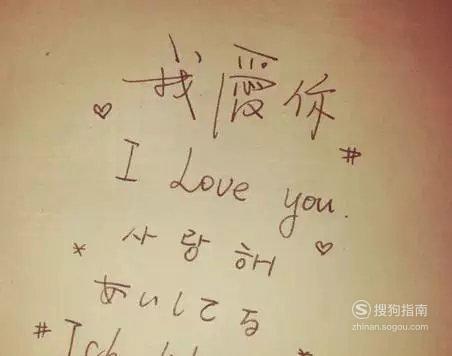 我愛你
♡ #
I Love you.
* 사랑해 ♡
あいしてる
# Ich
搜狗指南
zhinan.sogou.com